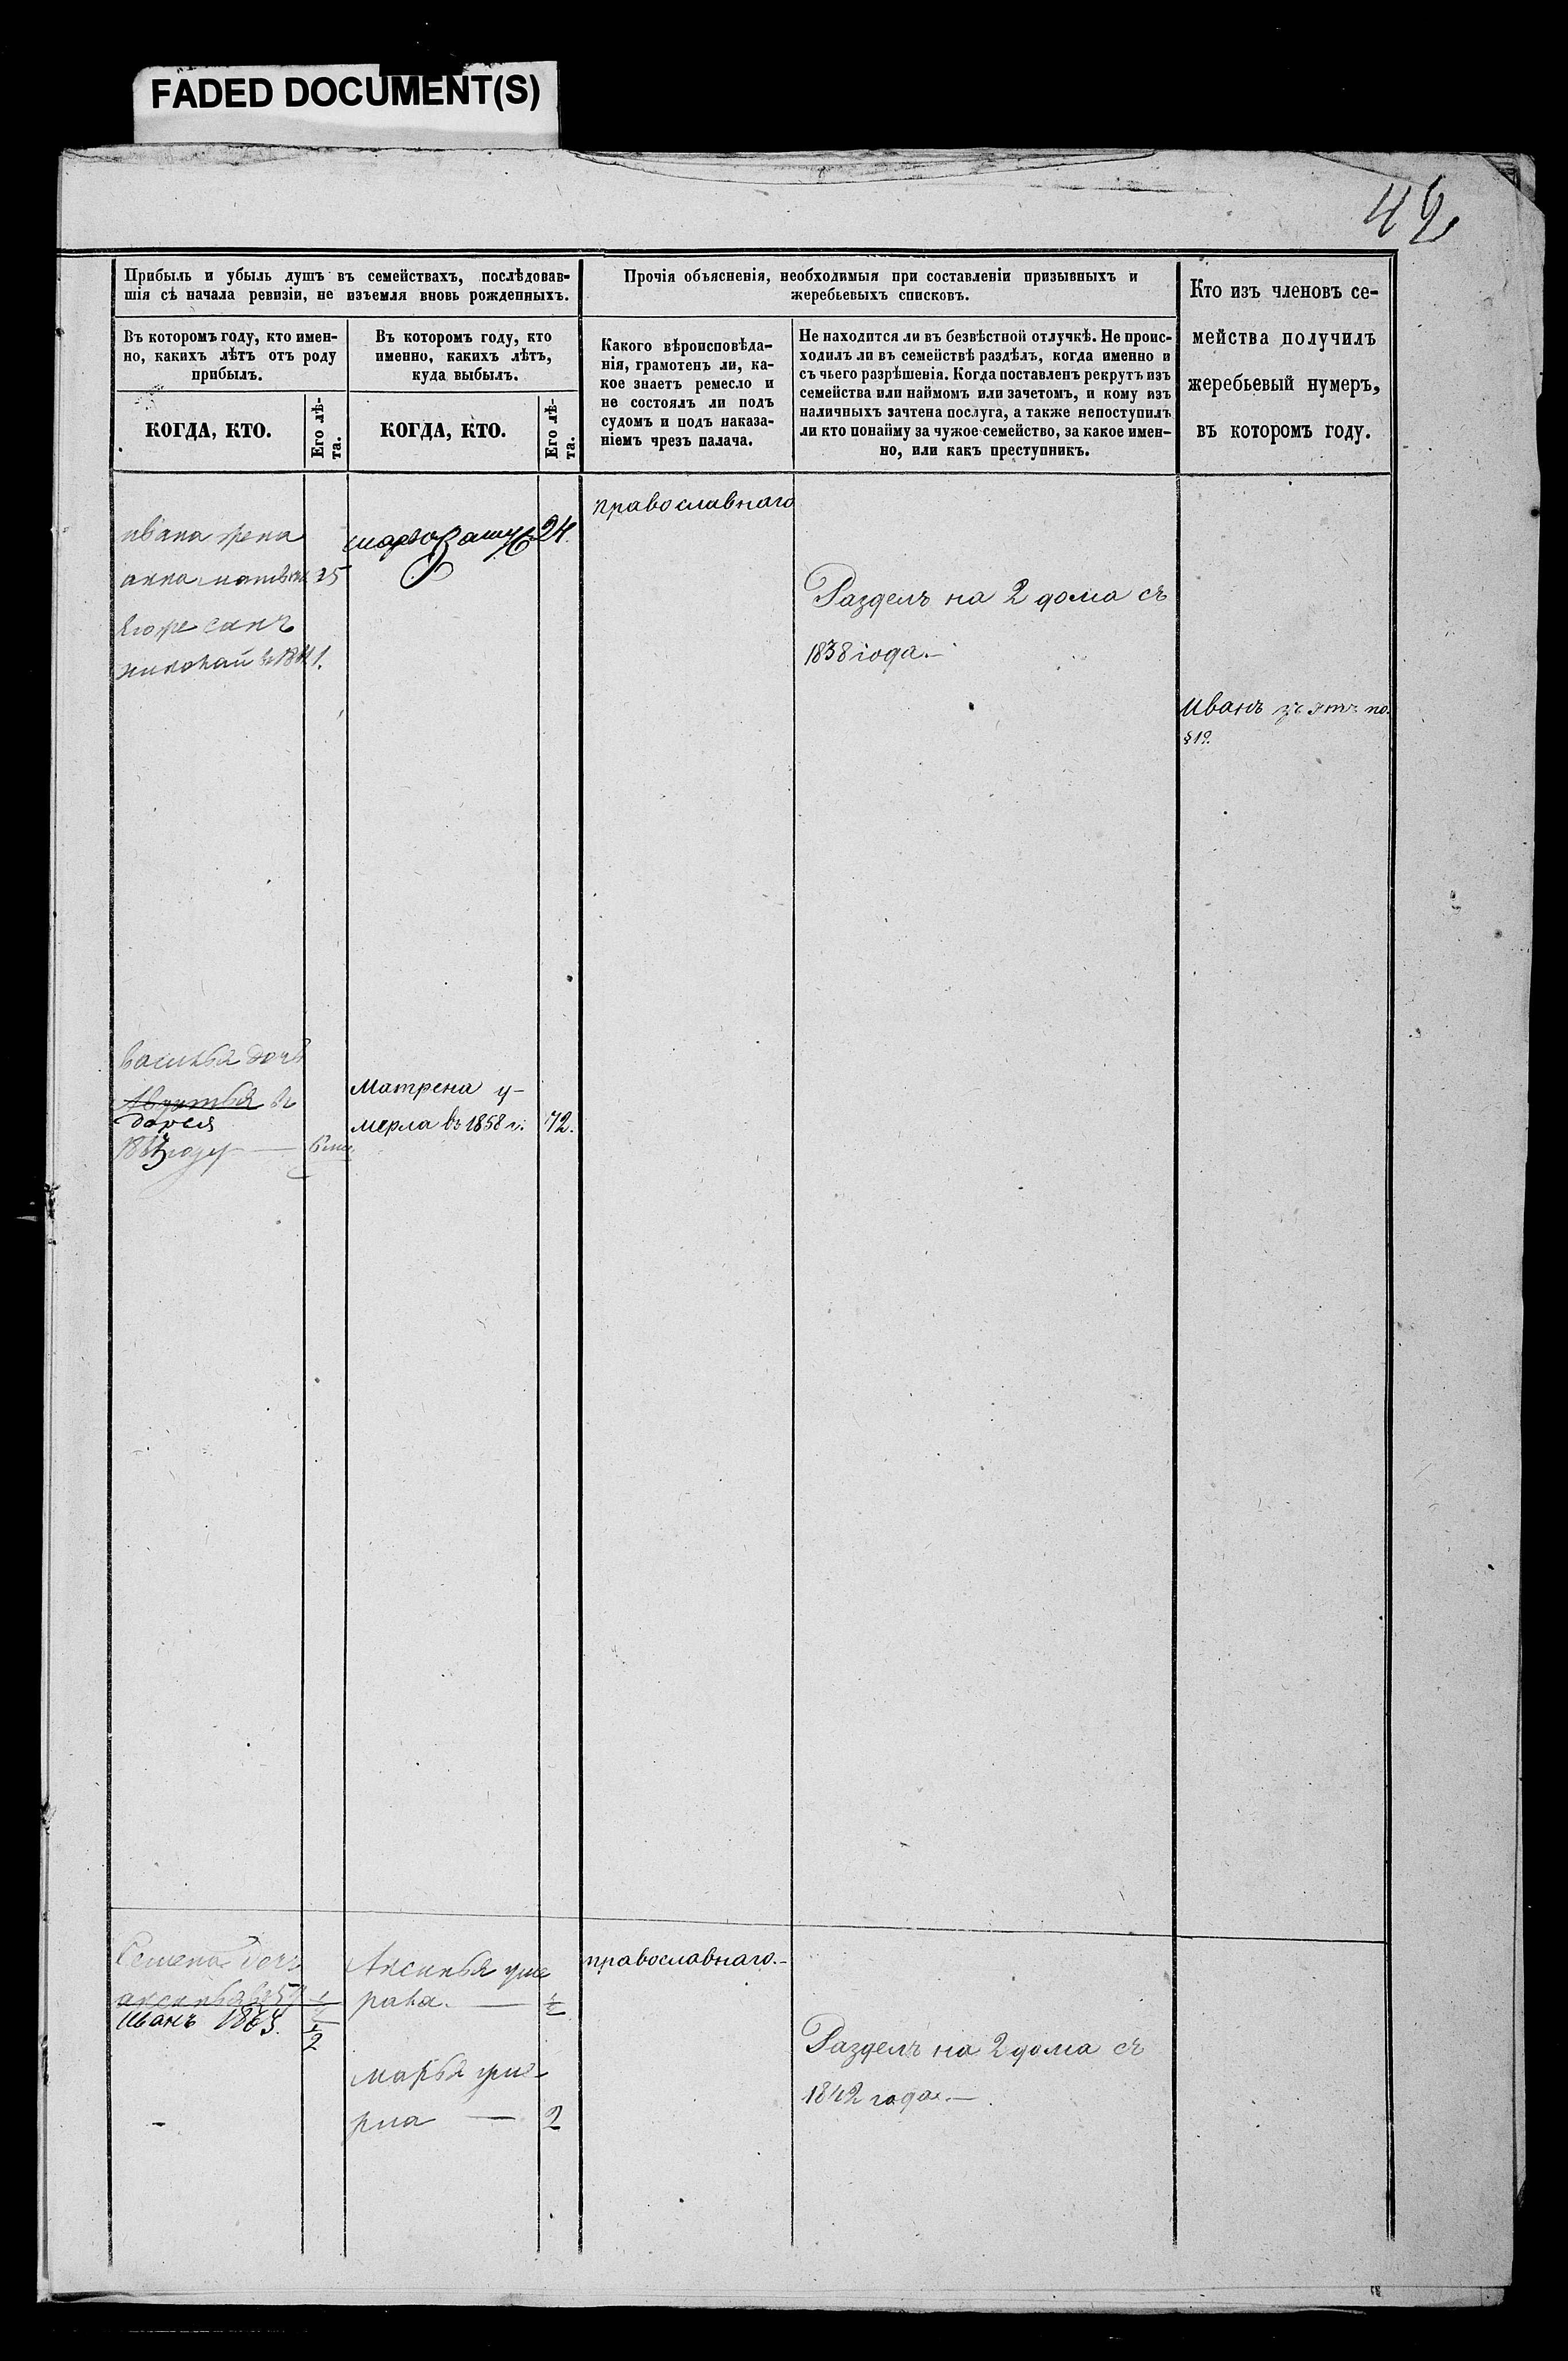 FADED DOCUMENT(S)
42
Прибыль и убыль душъ въ семействахъ, послѣдовав-
шія сѣ начала ревизіи, не изъемля вновь рожденныхъ.
Въ которомъ году, кто имен-
но, какихъ лѣтъ отъ роду
прибылъ.
Въ которомъ году, кто
именно, какихъ лѣтъ,
куда выбылъ.
КОГДА, КТО.
Его лѣ-
та.
КОГДА, КТО.
Его лѣ-
та.
Прочія объясненія, необходимыя при составленіи призывныхъ и
жеребьевыхъ списковъ.
Какого вѣроисповѣда-
нія, грамотенъ ли, ка-
кое знаетъ ремесло и
не состоялъ ли подъ
судомъ и подъ наказа-
ніемъ чрезъ палача.
Не находится ли въ безвѣстной отлучкѣ. Не проис-
ходилъ ли въ семействѣ раздѣлъ, когда именно и
съ чьего разрѣшенія. Когда поставленъ рекрутъ изъ
семейства или наймомъ или зачетомъ, и кому изъ
наличныхъ зачтена послуга, а также непоступилъ
ли кто понайму за чужое семейство, за какое имен-
но, или какъ преступникъ.
Кто изъ членовъ се-
мейства получилъ
жеребьевый нумеръ,
въ которомъ году.
православнаго
ивана жена
24.
анна 25
Раздѣлъ на 2 дома съ
1838 года.—
николай
Иванъ по
§19.
василья дочь
Авдотья въ
дарья
году —
Матрена у-
мерла въ 1858 г. 72.
Семена дочь
Иванъ
1/2
Аксинья уме
рла. — 1/2
марья уме-
рла — 2
православнаго.—
Раздѣлъ на 2 дома съ
1842 года.—